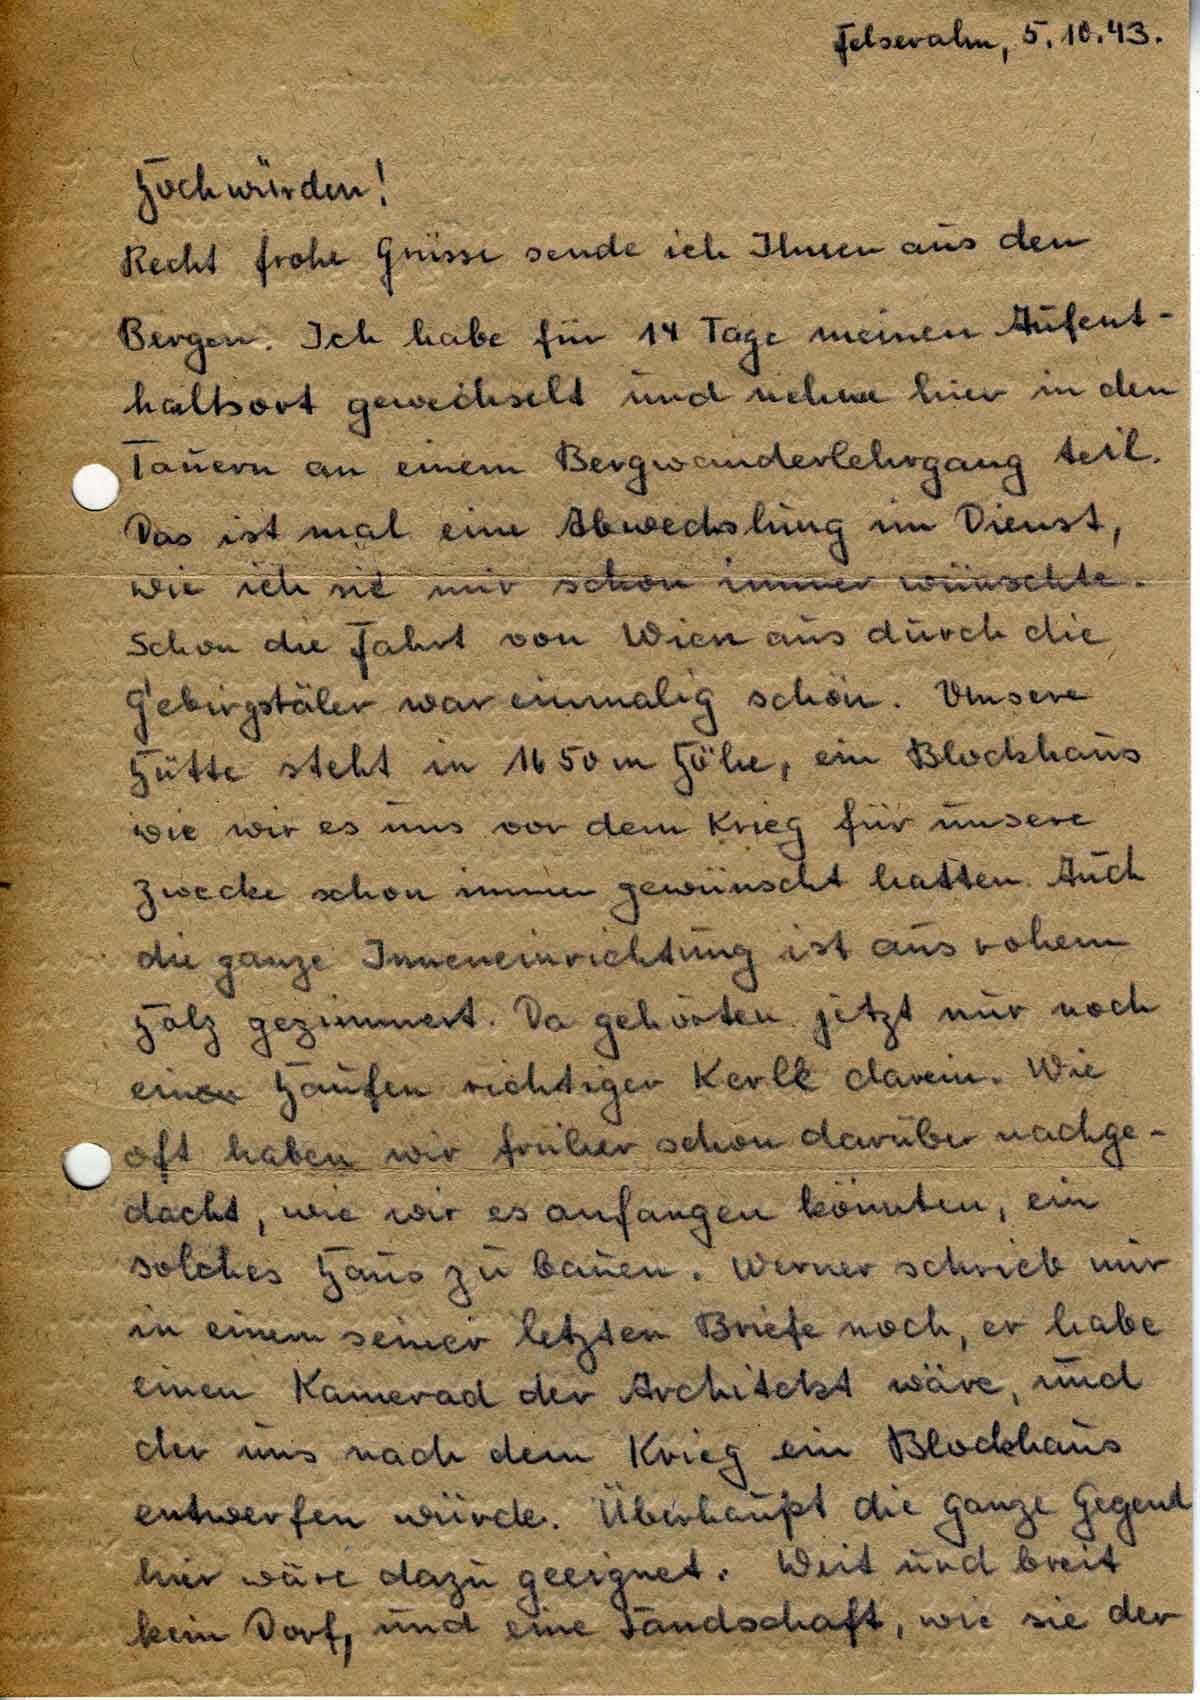 Felseralm, 5.10.43.
Hochwürden!
Recht frohe Grüsse sende ich Ihnen aus den
Bergen. Ich habe für 14 Tage meinen Aufent-
haltsort gewechselt und nehme hier in den
Tauern an einem Bergwanderlehrgang teil.
Das ist mal eine Abwechslung im Dienst,
wie ich sie mir schon immer wünschte.
Schon die Fahrt von Wien aus durch die
Gebirgstäler war einmalig schön. Unsere
Hütte steht in 1650 m Höhe, ein Blockhaus
wie wir es uns vor dem Krieg für unsere
Zwecke schon immer gewünscht hatten. Auch
die ganze Inneneinrichtung ist aus rohem
Holz gezimmert. Da gehörten jetzt nur noch
ein Haufen richtiger Kerle darein. Wie
oft haben wir früher schon darüber nachge-
dacht, wie wir es anfangen könnten, ein
solches Haus zu bauen. Werner schrieb mir
in einem seiner letzten Briefe noch, er habe
einen Kamerad der Architekt wäre, und
der uns nach dem Krieg ein Blockhaus
entwerfen würde. Überhaupt die ganze Gegend
hier wäre dazu geeignet. Weit und breit
kein Dorf, und eine Landschaft, wie sie der